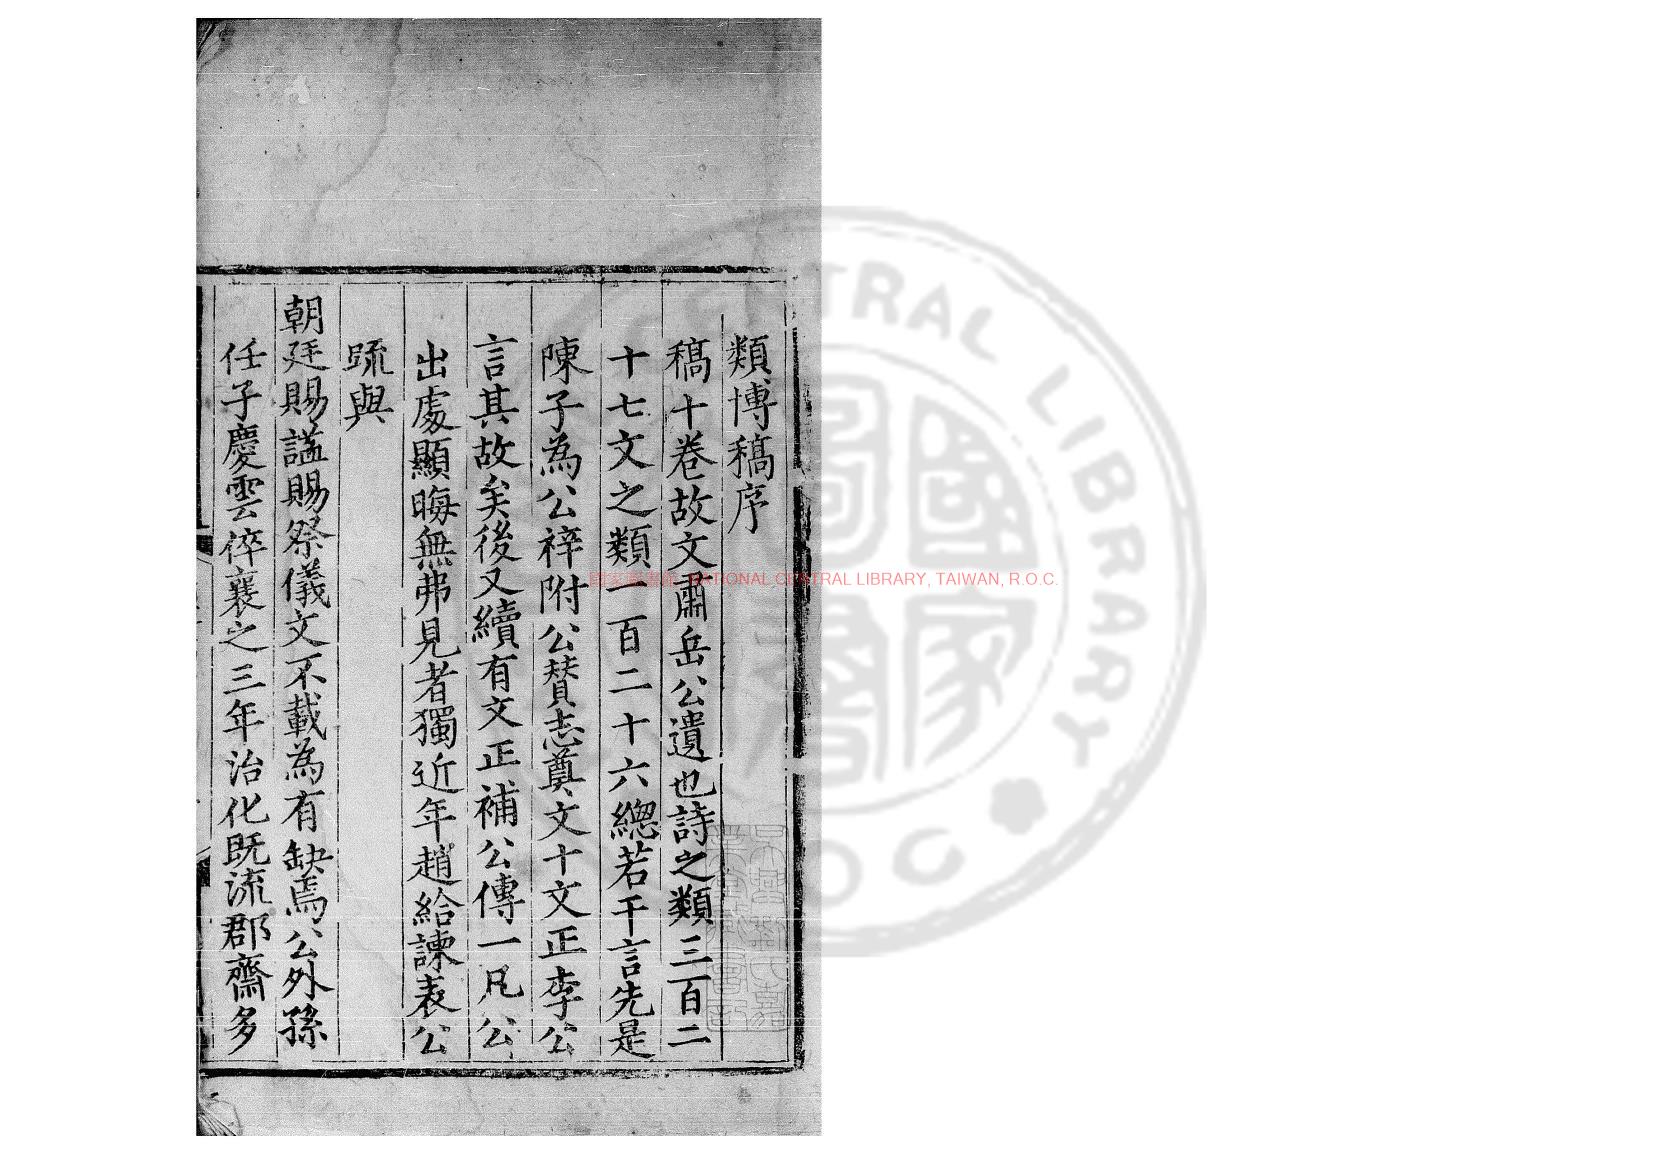 類博稿序
稿十卷故文肅岳公遺也詩之類三百二
十七文之類一百二十六總若干言先是
陳子為公梓附公賛志奠文十文正李公
言其故矣後又續有文正補公傳一凡公
出處顯晦無弗見者獨近年趙給諫表公
䟽與
朝廷賜謚賜祭儀文不載為有缺焉公外孫
任子慶雲倅襄之三年治化既流郡齋多
國家圖書館 NATIONAL CENTRAL LIBRARY, TAIWAN, R.O.C.
CENTRAL LIBRARY R.O.C.
國家圖書